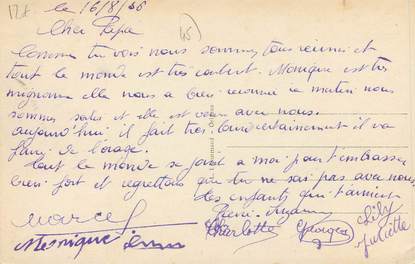 le 16/8/36
Cher Papa
Comme tu vois nous sommes tous réunis et
tout le monde est très content. Monique est très
mignonne elle nous a bien reconnu ce matin nous
sommes sortis et elle est venu avec nous.
aujourd'hui il fait très lourd certainement il va
faire de l'orage.
Tout le monde se joint a moi pour t'embrasser
bien fort et regrettons que tu ne sois pas avec nous
tes enfants qui t'aiment
Marcel
Charlotte Georges Lily
Monique Juliette